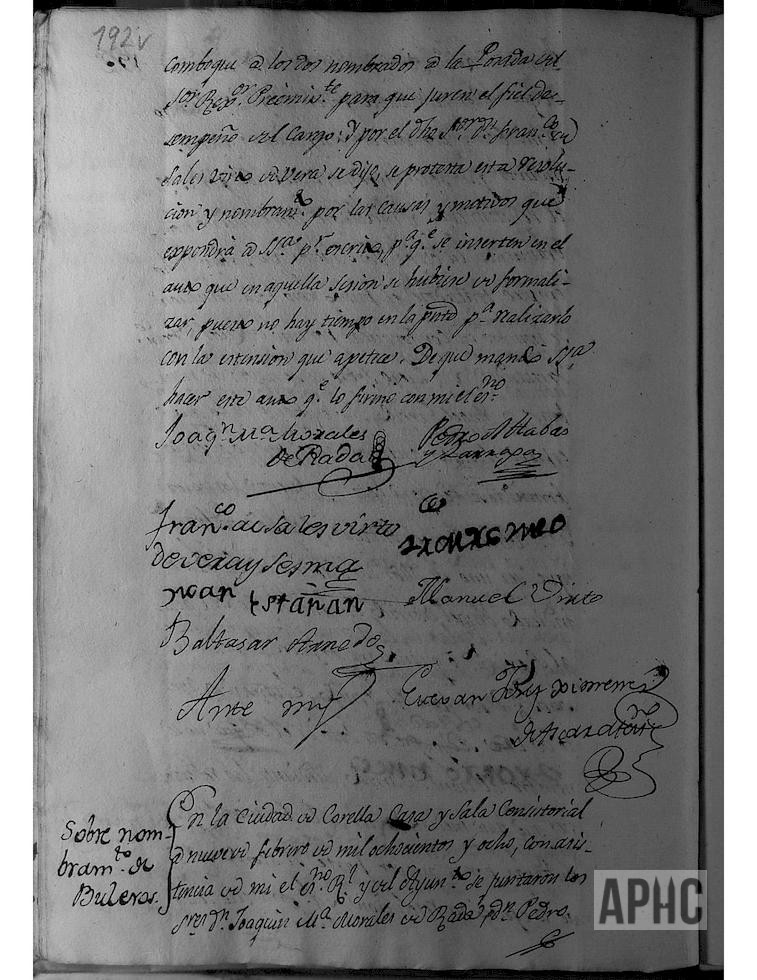 192v
comboque a los dos nombrados a la Posada del
Sor. Rexor. Preeminte. para que juren el fiel de-
sempeño del Cargo; Y por el dho Sor. Dn. Franco. de
Sales Virto de Vera se dijo, se protexta esta resolu-
cion y nombramto. por las causas y motivos que
expondrá a Ssa. pr. escrito, pa. qe. se inserten en el
auto que en aquella sesion se hubiere de formali-
zar, puesto no hay tiempo en la pnte pa. realizarlo
con la extension que apetece. De que mandó Ssa.
hacer este auto qe. lo firmó con mi el esno.
Joaqn. Ma. Morales
de Rada
Pedro
y
Franco. de Sales Virto
de Vera y Sesma
Juan
Manuel Virto
Baltasar Arnedo
Ante my
Estevan Ximenez
de
Sobre nom-
bramto. de
Buleros.
En la Ciudad de Corella Casa y Sala Consistorial
a nueve de febrero de mil ochocientos y ocho, con asis-
tencia de mi el esno. Rl. y del Ayunto. se juntaron los
Sres. Dn. Joaquin Ma. Morales de Rada, Dn. Pedro
APHC